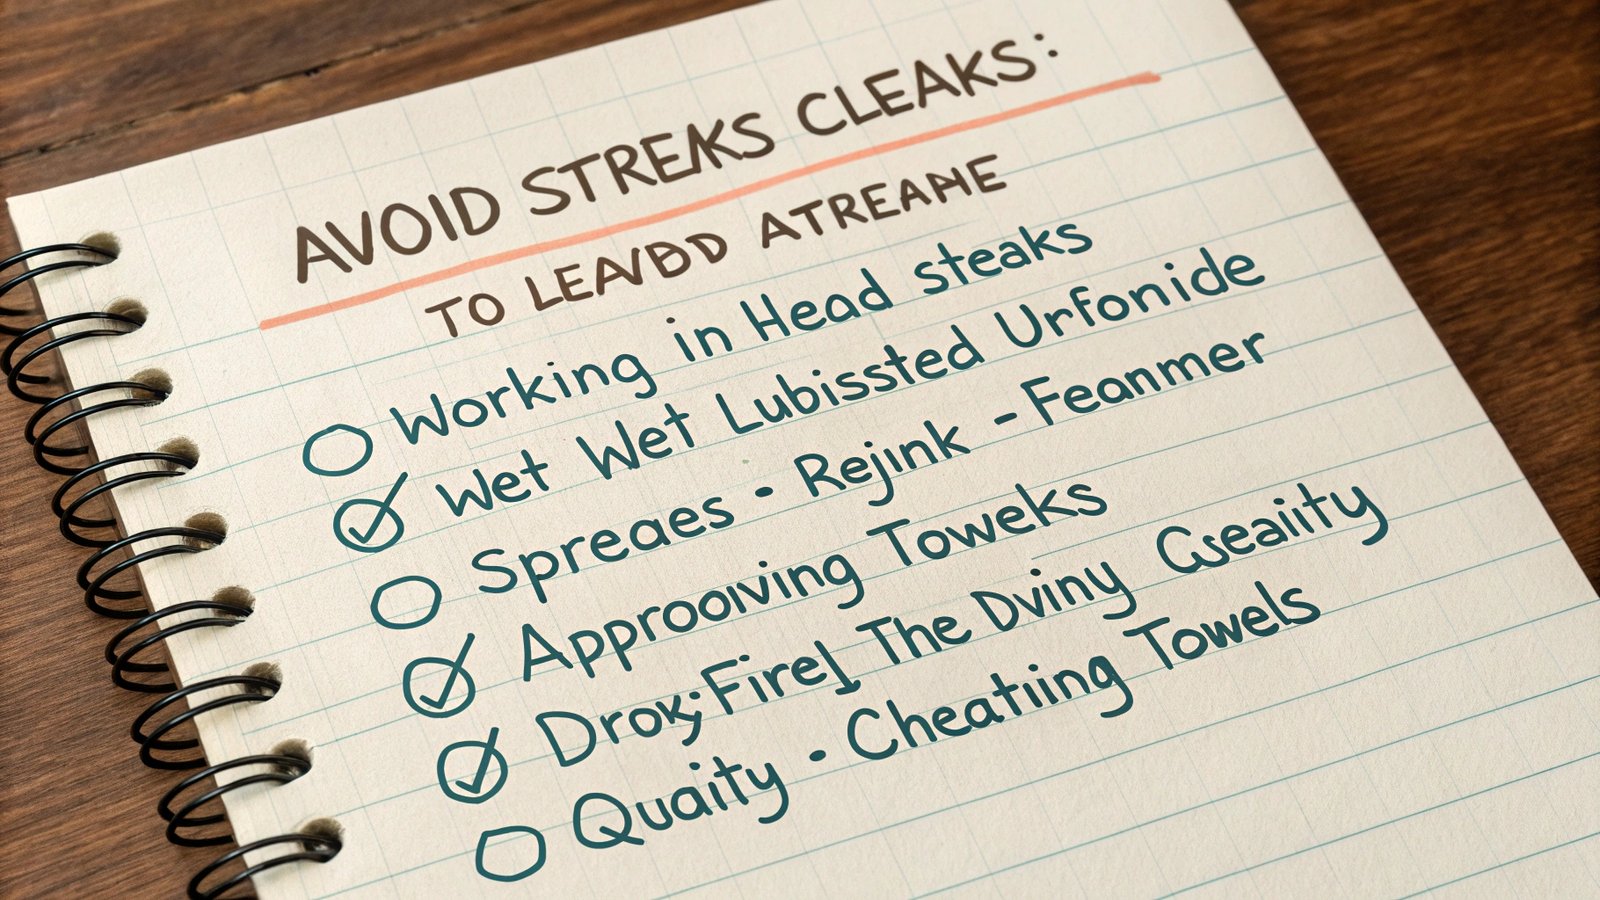 AVOID STREAKS CLEAKS:
TO LEAVBD ATREAPHE
Working in Head steaks
Wet Wet Lubissted Urfonide
Spreaes · Rejink - Feanmer
Approoiving Toweks
Droky; Firel The Dviny Gseaiity
Quaity · Cheatiing Towels